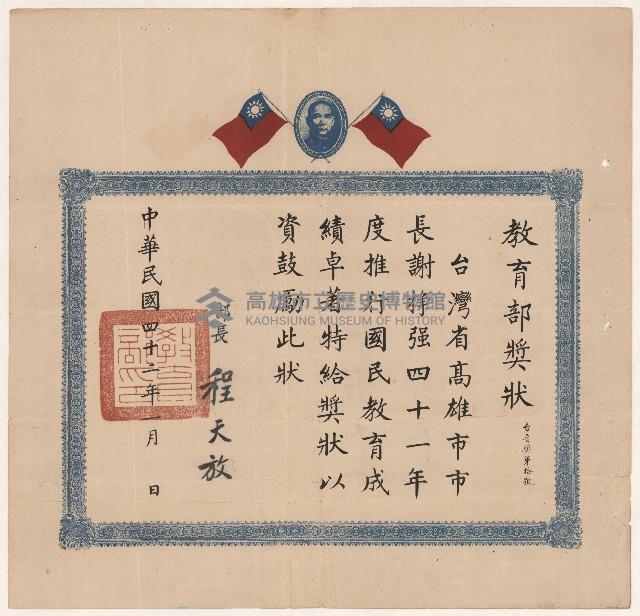 教育部獎狀
台灣省高雄市市
長謝掙强四十一年
度推行國民教育成
績卓著特給獎狀以
資鼓勵此狀
部長 程天放
中華民國四十二年一月 日
高雄市立歷史博物館
KAOHSIUNG MUSEUM OF HISTORY